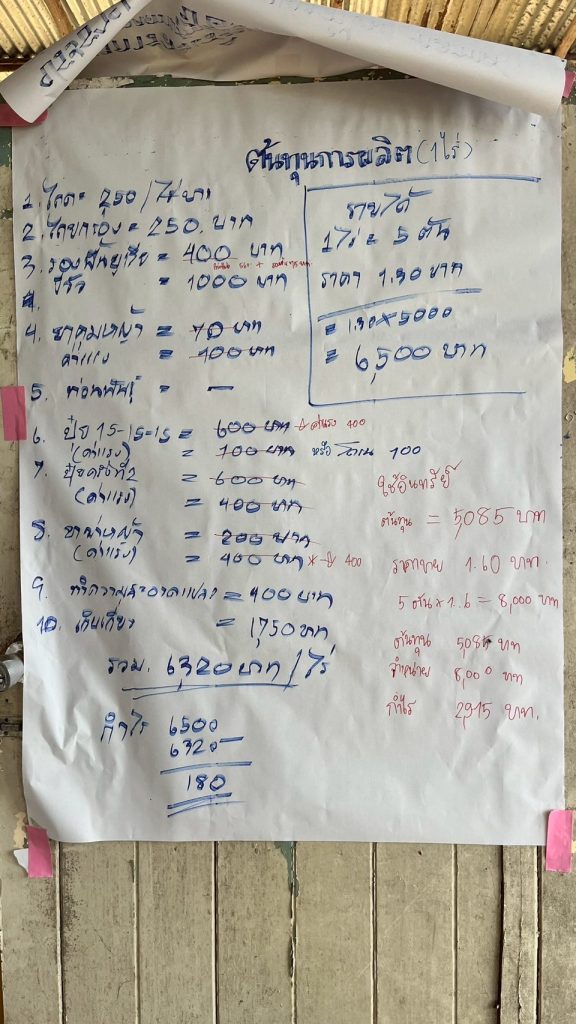 ต้นทุนการผลิต (1ไร่)
1. ไถดะ = 250 / ไร่
2. ไถยกร่อง = 250. บาท
3. รองพื้นปุ๋ย = 400 บาท
ขี้วัว = 1000 บาท
4. ยาคุมหญ้า = 70 บาท
ค่าแรง = 100 บาท
5. ท่อนพันธุ์ = —
6. ปุ๋ย 15-15-15 = 600 บาท ค่าแรง 400
(ค่าแรง) = 100 บาท หรือ 100
7. ปุ๋ยครั้งที่2 = 600 บาท
(ค่าแรง) = 400 บาท
8. ยาฆ่าหญ้า = 200 บาท
(ค่าแรง) = 400 บาท * 400
9. ทำความสะอาดแปลง = 400 บาท
10. เก็บเกี่ยว = 1,750 บาท
รวม. 6,320 บาท / ไร่
กำไร 6500
6320 —
180
รายได้
1 ไร่ = 5 ตัน
ราคา 1.30 บาท
= 1.30 x 5000
= 6,500 บาท
ใช้อินทรีย์
ต้นทุน = 5,085 บาท
ราคาขาย 1.60 บาท.
5 ตัน x 1.6 = 8,000 บาท
ต้นทุน 5,085 บาท
จำหน่าย 8,000 บาท
กำไร 2,915 บาท.